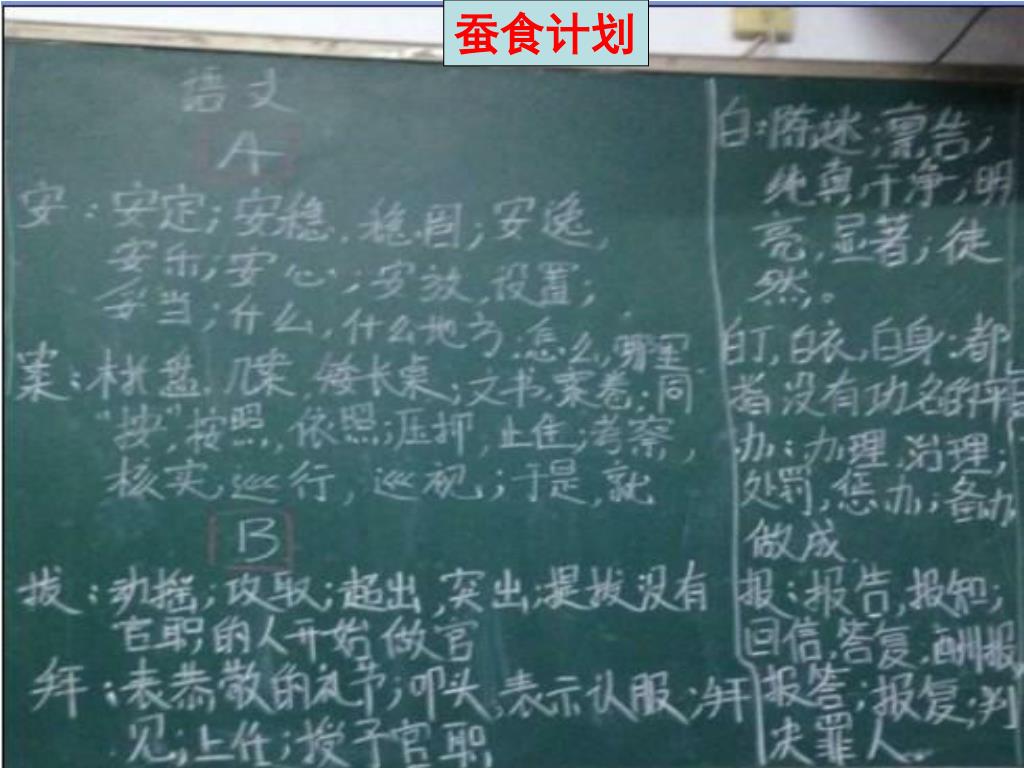 蚕食计划
语文
A
安：安定；安稳，稳固；安逸，
安乐；安心；安放，设置；
妥当；什么，什么地方，怎么，哪里
案：木托盘，几案，矮长桌；文书，案卷；同
“按”，按照，依照；压抑，止住；考察，
核实，巡行，巡视；于是，就
B
拔：动摇；攻取；超出，突出；提拔没有
官职的人开始做官
拜：表恭敬的礼节；叩头，表示认服；拜
见；上任；授予官职
白：陈述；禀告；
纯真，干净；明
亮，显著；徒
然。
白丁，白衣，白身：都
指没有功名的平民
办：办理，治理；
处罚，惩办；备办
做成
报：报告，报知；
回信，答复，酬报，
报答；报复；判
决罪人。